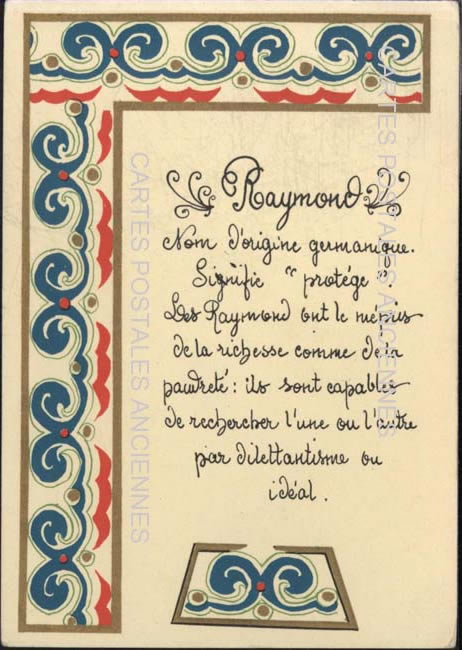 Raymond
Nom d'origine germanique.
Signifie " protège ".
Les Raymond ont le mépris
de la richesse comme de la
pauvreté : ils sont capables
de rechercher l'une ou l'autre
par dilettantisme ou
idéal.
CARTES POSTALES ANCIENNES
CARTES POSTALES ANCIENNES